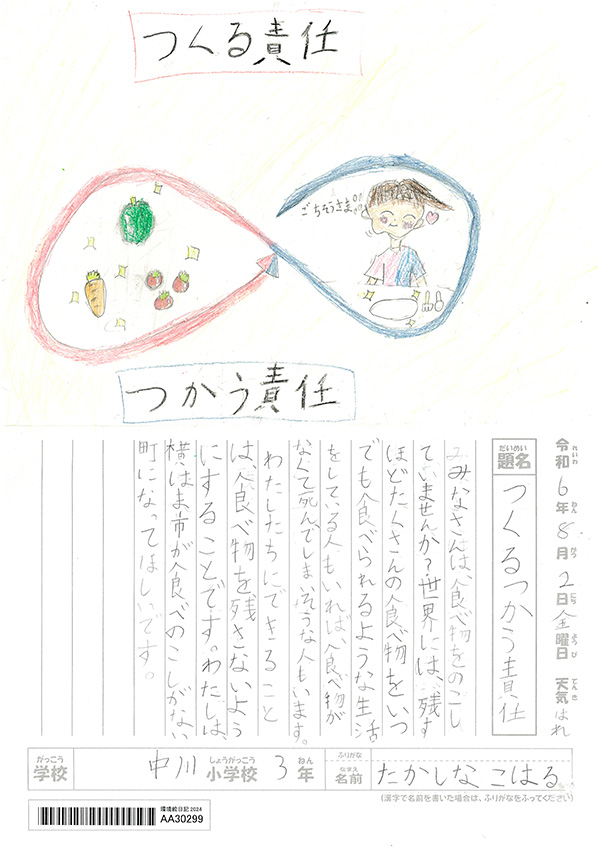 つくる責任
ごちそうさま!!
つかう責任
令和6年8月2日金曜日 天気はれ
れいわ ねん がつ にち ようび てんき
だいめい
題名
つくるつかう責任
みなさんは、食べ物をのこし
ていませんか?世界には、残す
ほどたくさんの食べ物をいつ
でも食べられるような生活
をしている人もいれば、食べ物が
なくて死んでしまいそうな人もいます。
わたしたちにできること
は、食べ物を残さないよう
にすることです。わたしは
横はま市が食べのこしがない
町になってほしいです。
がっこう しょうがっこう ねん ふりがな
学校 中川小学校 3年
なまえ
名前 たかしな こはる
(漢字で名前を書いた場合は、ふりがなをふってください)
環境絵日記2024
AA30299